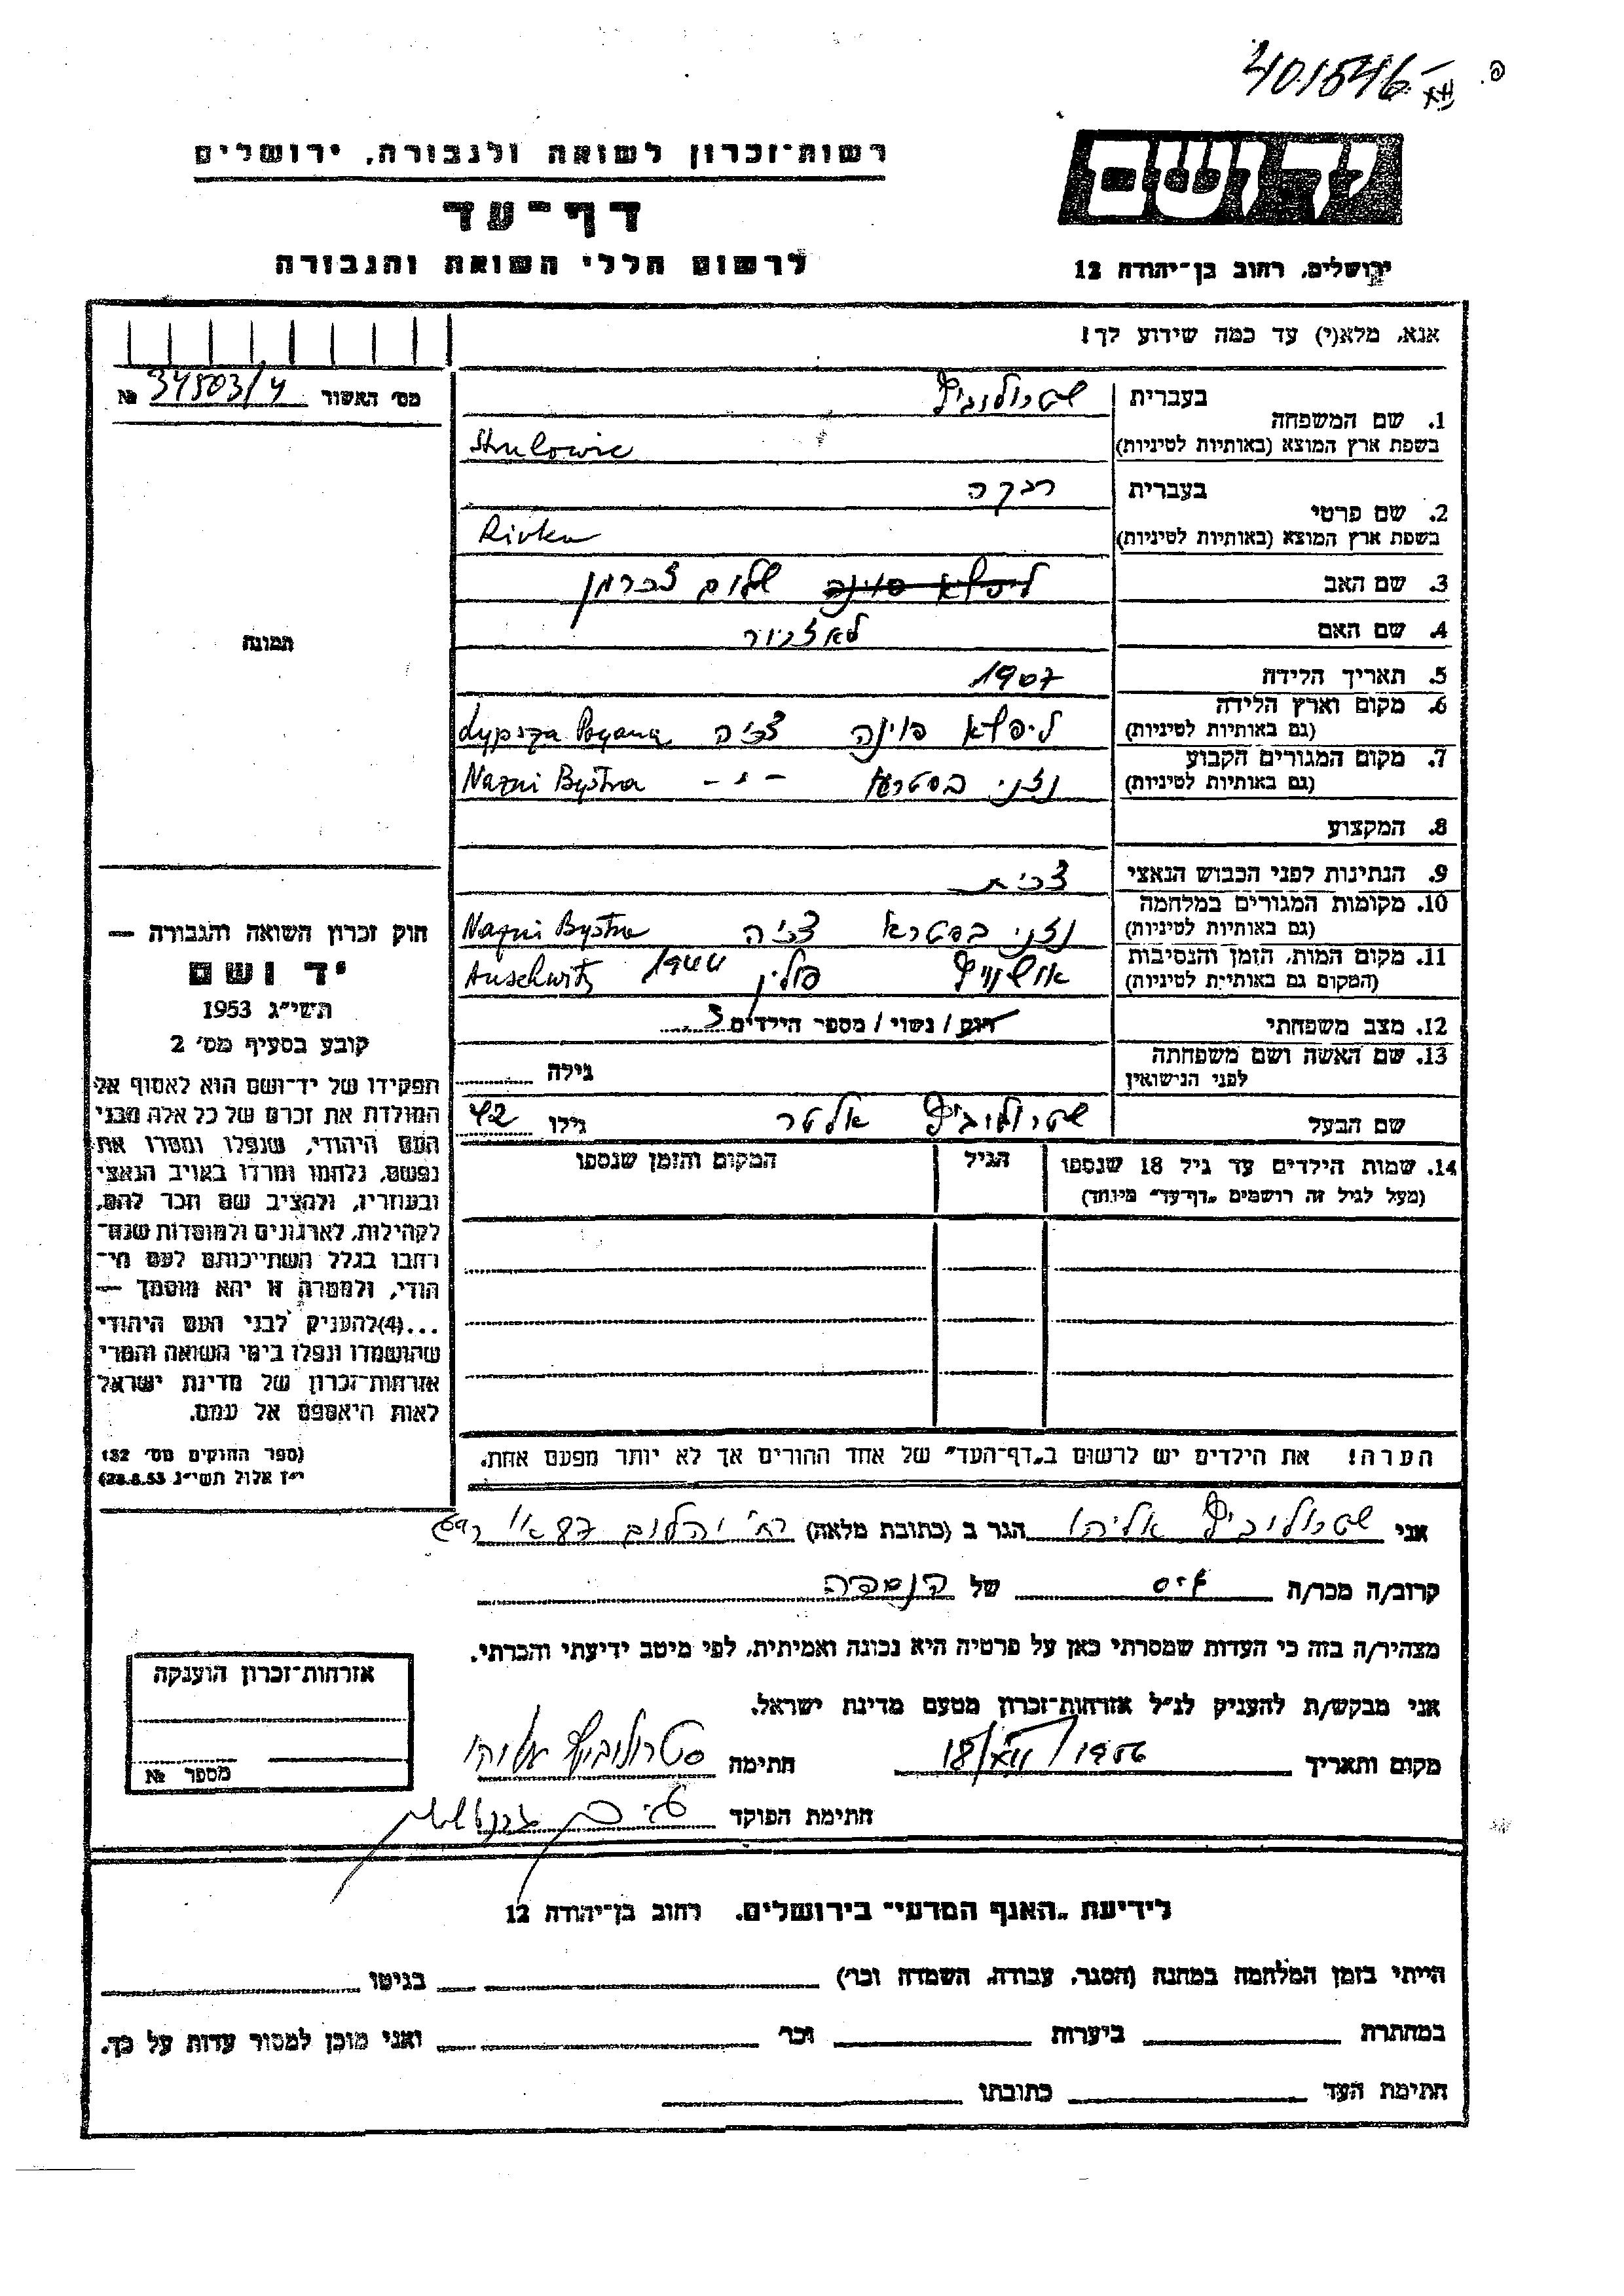 401546
רשות־זכרון לשואה ולגבורה, ירושלים
יד ושם
דף־עד
לרשום חללי השואה והגבורה
ירושלים, רחוב בן־יהודה 12
אנא, מלא(י) עד כמה שידוע לך!
מס׳ האשור 34503/4 №
1. שם המשפחה בעברית שטרולוביץ
בשפת ארץ המוצא (באותיות לטיניות) Strulowic
2. שם פרטי בעברית רבקה
בשפת ארץ המוצא (באותיות לטיניות) Rivka
3. שם האב שלום צוכרמן
4. שם האם
5. תאריך הלידה 1907
6. מקום וארץ הלידה (גם באותיות לטיניות) ליפשא פוינה צכיה Lypsza Poyana
7. מקום המגורים הקבוע (גם באותיות לטיניות) נזני בסטרא -״- Nazni Bystra
8. המקצוע
9. הנתינות לפני הכבוש הנאצי צכית
10. מקומות המגורים במלחמה (גם באותיות לטיניות) נזני בסטרא צכיה Nazni Bystra
11. מקום המות, הזמן והנסיבות (המקום גם באותיית לטיניות) אושוויץ פולין 1944 Auschwitz
12. מצב משפחתי רווק / נשוי / מספר הילדים 3
13. שם האשה ושם משפחתה לפני הנישואין גילה
שם הבעל שטרולוביץ אלטר גילו 42
14. שמות הילדים עד גיל 18 שנספו (מעל לגיל זה רושמים „דף־עד״ מיוחד) הגיל המקום והזמן שנספו
הערה! את הילדים יש לרשום ב„דף־העד״ של אחד ההורים אך לא יותר מפעם אחת.
תמונה
חוק זכרון השואה והגבורה —
יד ושם
תשי״ג 1953
קובע בסעיף מס׳ 2
תפקידו של יד־ושם הוא לאסוף אל
המולדת את זכרם של כל אלה מבני
העם היהודי, שנפלו ומסרו את
נפשם, נלחמו ומרדו באויב הנאצי
ובעוזריו, ולהציב שם וזכר להם,
לקהילות, לארגונים ולמוסדות שנח־
רבו בגלל השתייכותם לעם הי־
הודי, ולמטרה זו יהא מוסמך —
...(4)להעניק לבני העם היהודי
שהושמדו ונפלו בימי השואה והמרי
אזרחות־זכרון של מדינת ישראל
לאות היאספם אל עמם.
(ספר החוקים מס׳ 132
י״ז אלול תשי״ג 28.8.53)
אני שטרולוביץ אליהו הגר ב (כתובת מלאה) רח׳ יהלום 87
קרוב/ה מכר/ה גיס של הנספה
מצהיר/ה בזה כי העדות שמסרתי כאן על פרטיה היא נכונה ואמיתית, לפי מיטב ידיעתי והכרתי.
אני מבקש/ת להעניק לנ״ל אזרחות־זכרון מטעם מדינת ישראל.
מקום ותאריך 18/XII/1956 חתימה סטרולוביץ אליהו
חתימת הפוקד
אזרחות־זכרון הוענקה
מספר №
לידיעת „האגף המדעי״ בירושלים, רחוב בן־יהודה 12
הייתי בזמן המלחמה במחנה (הסגר, עבודה, השמדה וכו׳) בגיטו
במחתרת ביערות וכו׳ ואני מוכן למסור עדות על כך.
חתימת העד כתובתו